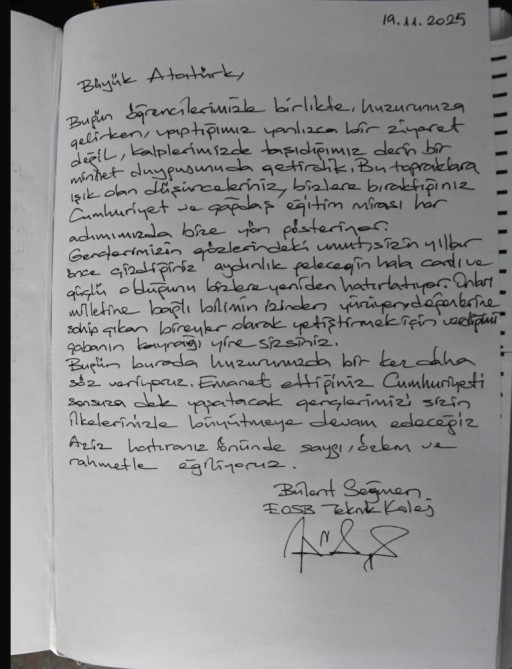 19.11.2025
Büyük Atatürk,
Bugün öğrencilerimizle birlikte, huzurunuza
gelirken, yaptığımız yanlızca bir ziyaret
değil, kalplerimizde taşıdığımız derin bir
minnet duygusunuda getirdik. Bu topraklara
ışık olan düşünceleriniz, bizlere bıraktığınız
Cumhuriyet ve çağdaş eğitim mirası her
adımımızda bize yön gösteriyor.
Gençlerimizin gözlerindeki umut, sizin yıllar
önce çizdiğiniz aydınlık geleceğin hala canlı ve
güçlü olduğunu bizlere yeniden hatırlatıyor. Onları
milletine bağlı bilimin izinden yürüyen, değerlerine
sahip çıkan bireyler olarak yetiştirmek için verdiğimiz
çabanın kaynağı yine sizsiniz.
Bugün burada huzurunuzda bir kez daha
söz veriyoruz. Emanet ettiğiniz Cumhuriyeti
sonsuza dek yaşatacak gençlerimizi sizin
ilkelerinizle büyütmeye devam edeceğiz
Aziz hatıranız önünde saygı, özlem ve
rahmetle eğiliyoruz.
Bülent Seğmen
EOSB Teknik Kolej